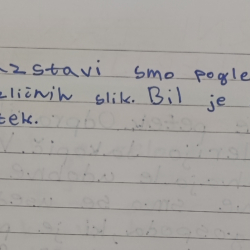 azstavi smo pogle
zličnih slik. Bil je
tek.